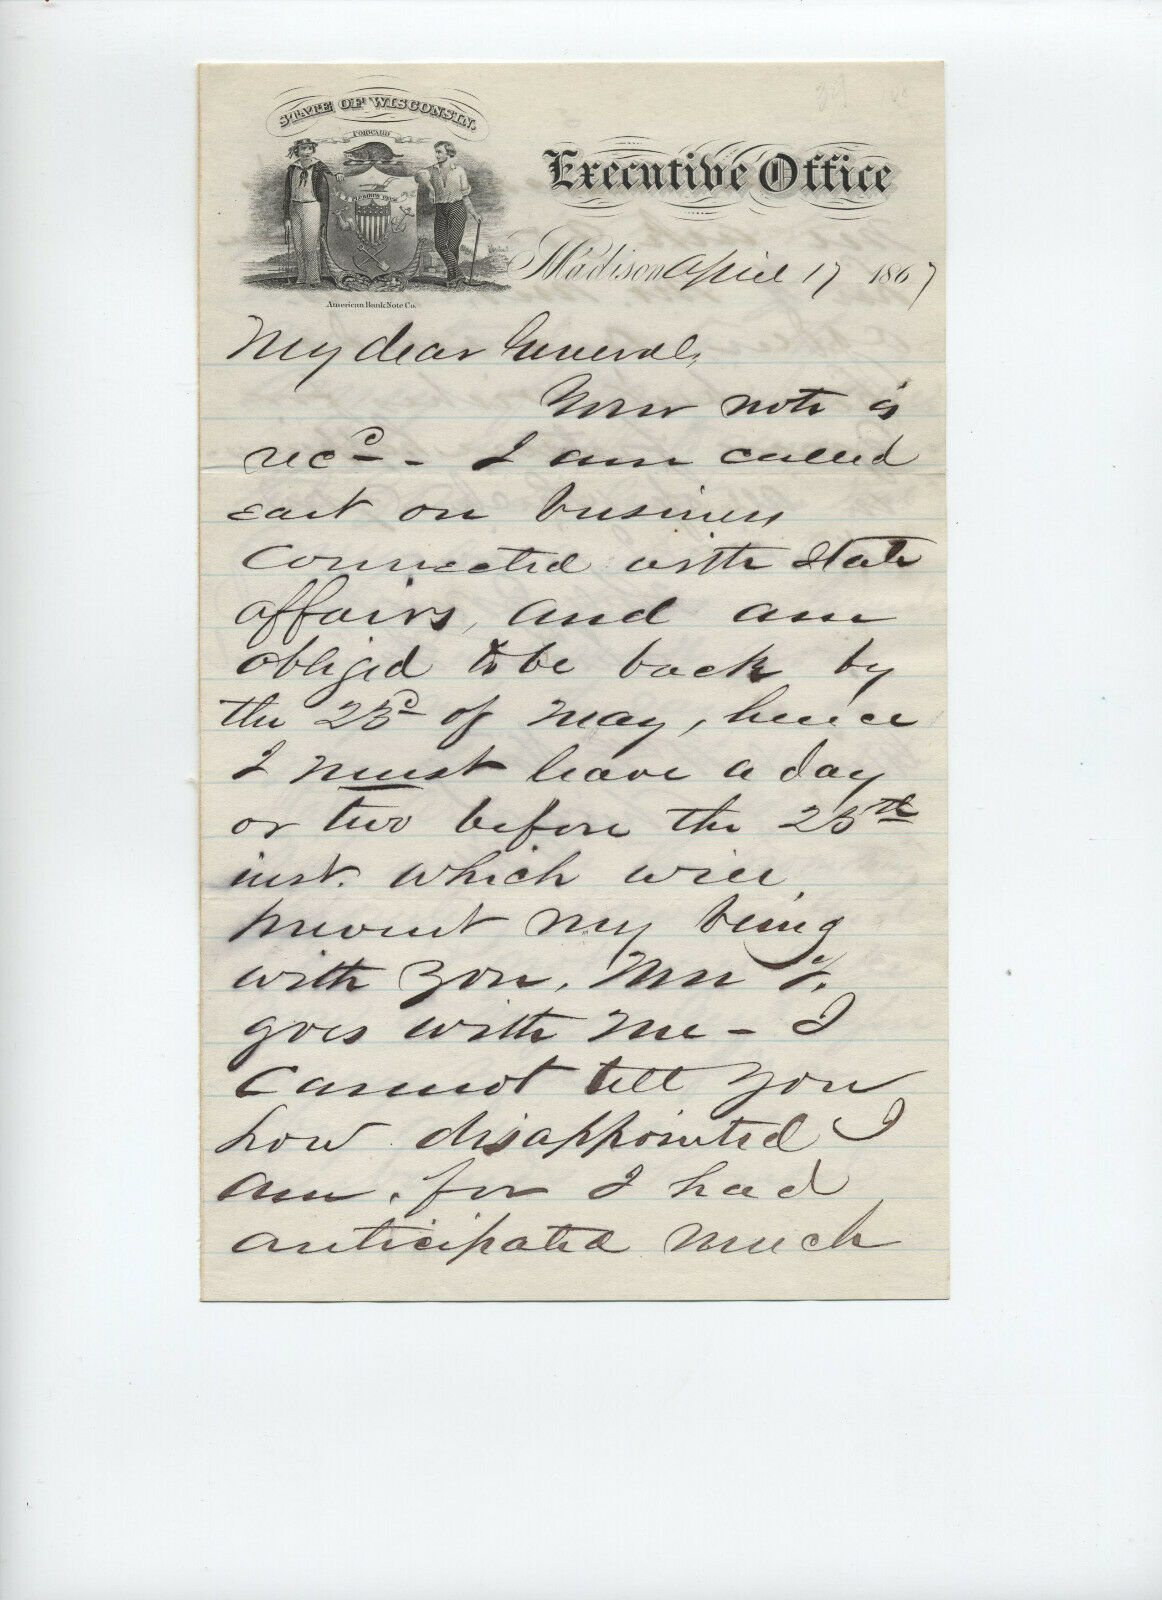 STATE OF WISCONSIN.
FORWARD
Executive Office
Madison April 17 1867
American Bank Note Co.
My dear General,
Your note is
recd - I am called
east on business
connected with State
affairs, and am
obliged to be back by
the 23d of May, hence
I must leave a day
or two before the 25th
inst. which will
prevent my being
with you. Mrs F.
goes with me - I
cannot tell you
how disappointed I
am, for I had
anticipated much